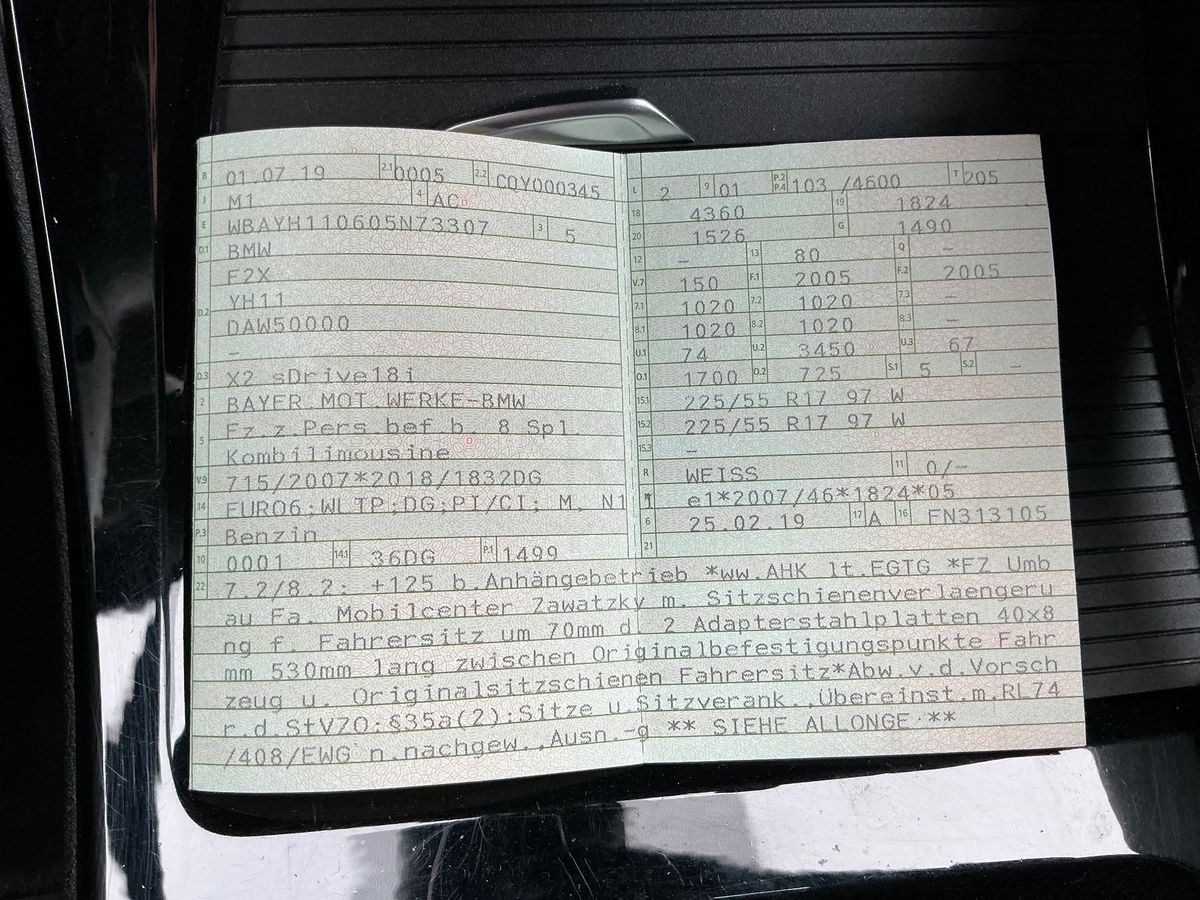 B 01.07.19 2.1 0005 2.2 CQY000345
J M1 4 AC
E WBAYH110605N73307 3 5
D.1 BMW
F2X
YH11
D.2 DAW50000
–
D.3 X2 sDrive18i
2 BAYER.MOT.WERKE-BMW
5 Fz.z.Pers.bef.b. 8 Spl.
Kombilimousine
V.9 715/2007*2018/1832DG
14 EURO6;WLTP;DG;PI/CI; M, N1 I
P.3 Benzin
10 0001 14.1 36DG P.1 1499
L 2 9 01 P.2 P.4 103 /4600 T 205
18 4360 19 1824
20 1526 G 1490
12 – 13 80 Q –
V.7 150 F.1 2005 F.2 2005
7.1 1020 7.2 1020 7.3 –
8.1 1020 8.2 1020 8.3 –
U.1 74 U.2 3450 U.3 67
O.1 1700 O.2 725 S.1 5 S.2 –
15.1 225/55 R17 97 W
15.2 225/55 R17 97 W
15.3 –
R WEISS 11 0/-
e1*2007/46*1824*05
6 25.02.19 17 A 16 FN313105
21
22 7.2/8.2: +125 b.Anhängebetrieb *ww.AHK lt.EGTG *FZ Umb
au Fa. Mobilcenter Zawatzky m. Sitzschienenverlaengeru
ng f. Fahrersitz um 70mm d. 2 Adapterstahlplatten 40x8
mm 530mm lang zwischen Originalbefestigungspunkte Fahr
zeug u. Originalsitzschienen Fahrersitz*Abw.v.d.Vorsch
r.d.StVZO:§35a(2):Sitze u.Sitzverank.,Übereinst.m.RL74
/408/EWG n.nachgew.,Ausn.-g ** SIEHE ALLONGE **